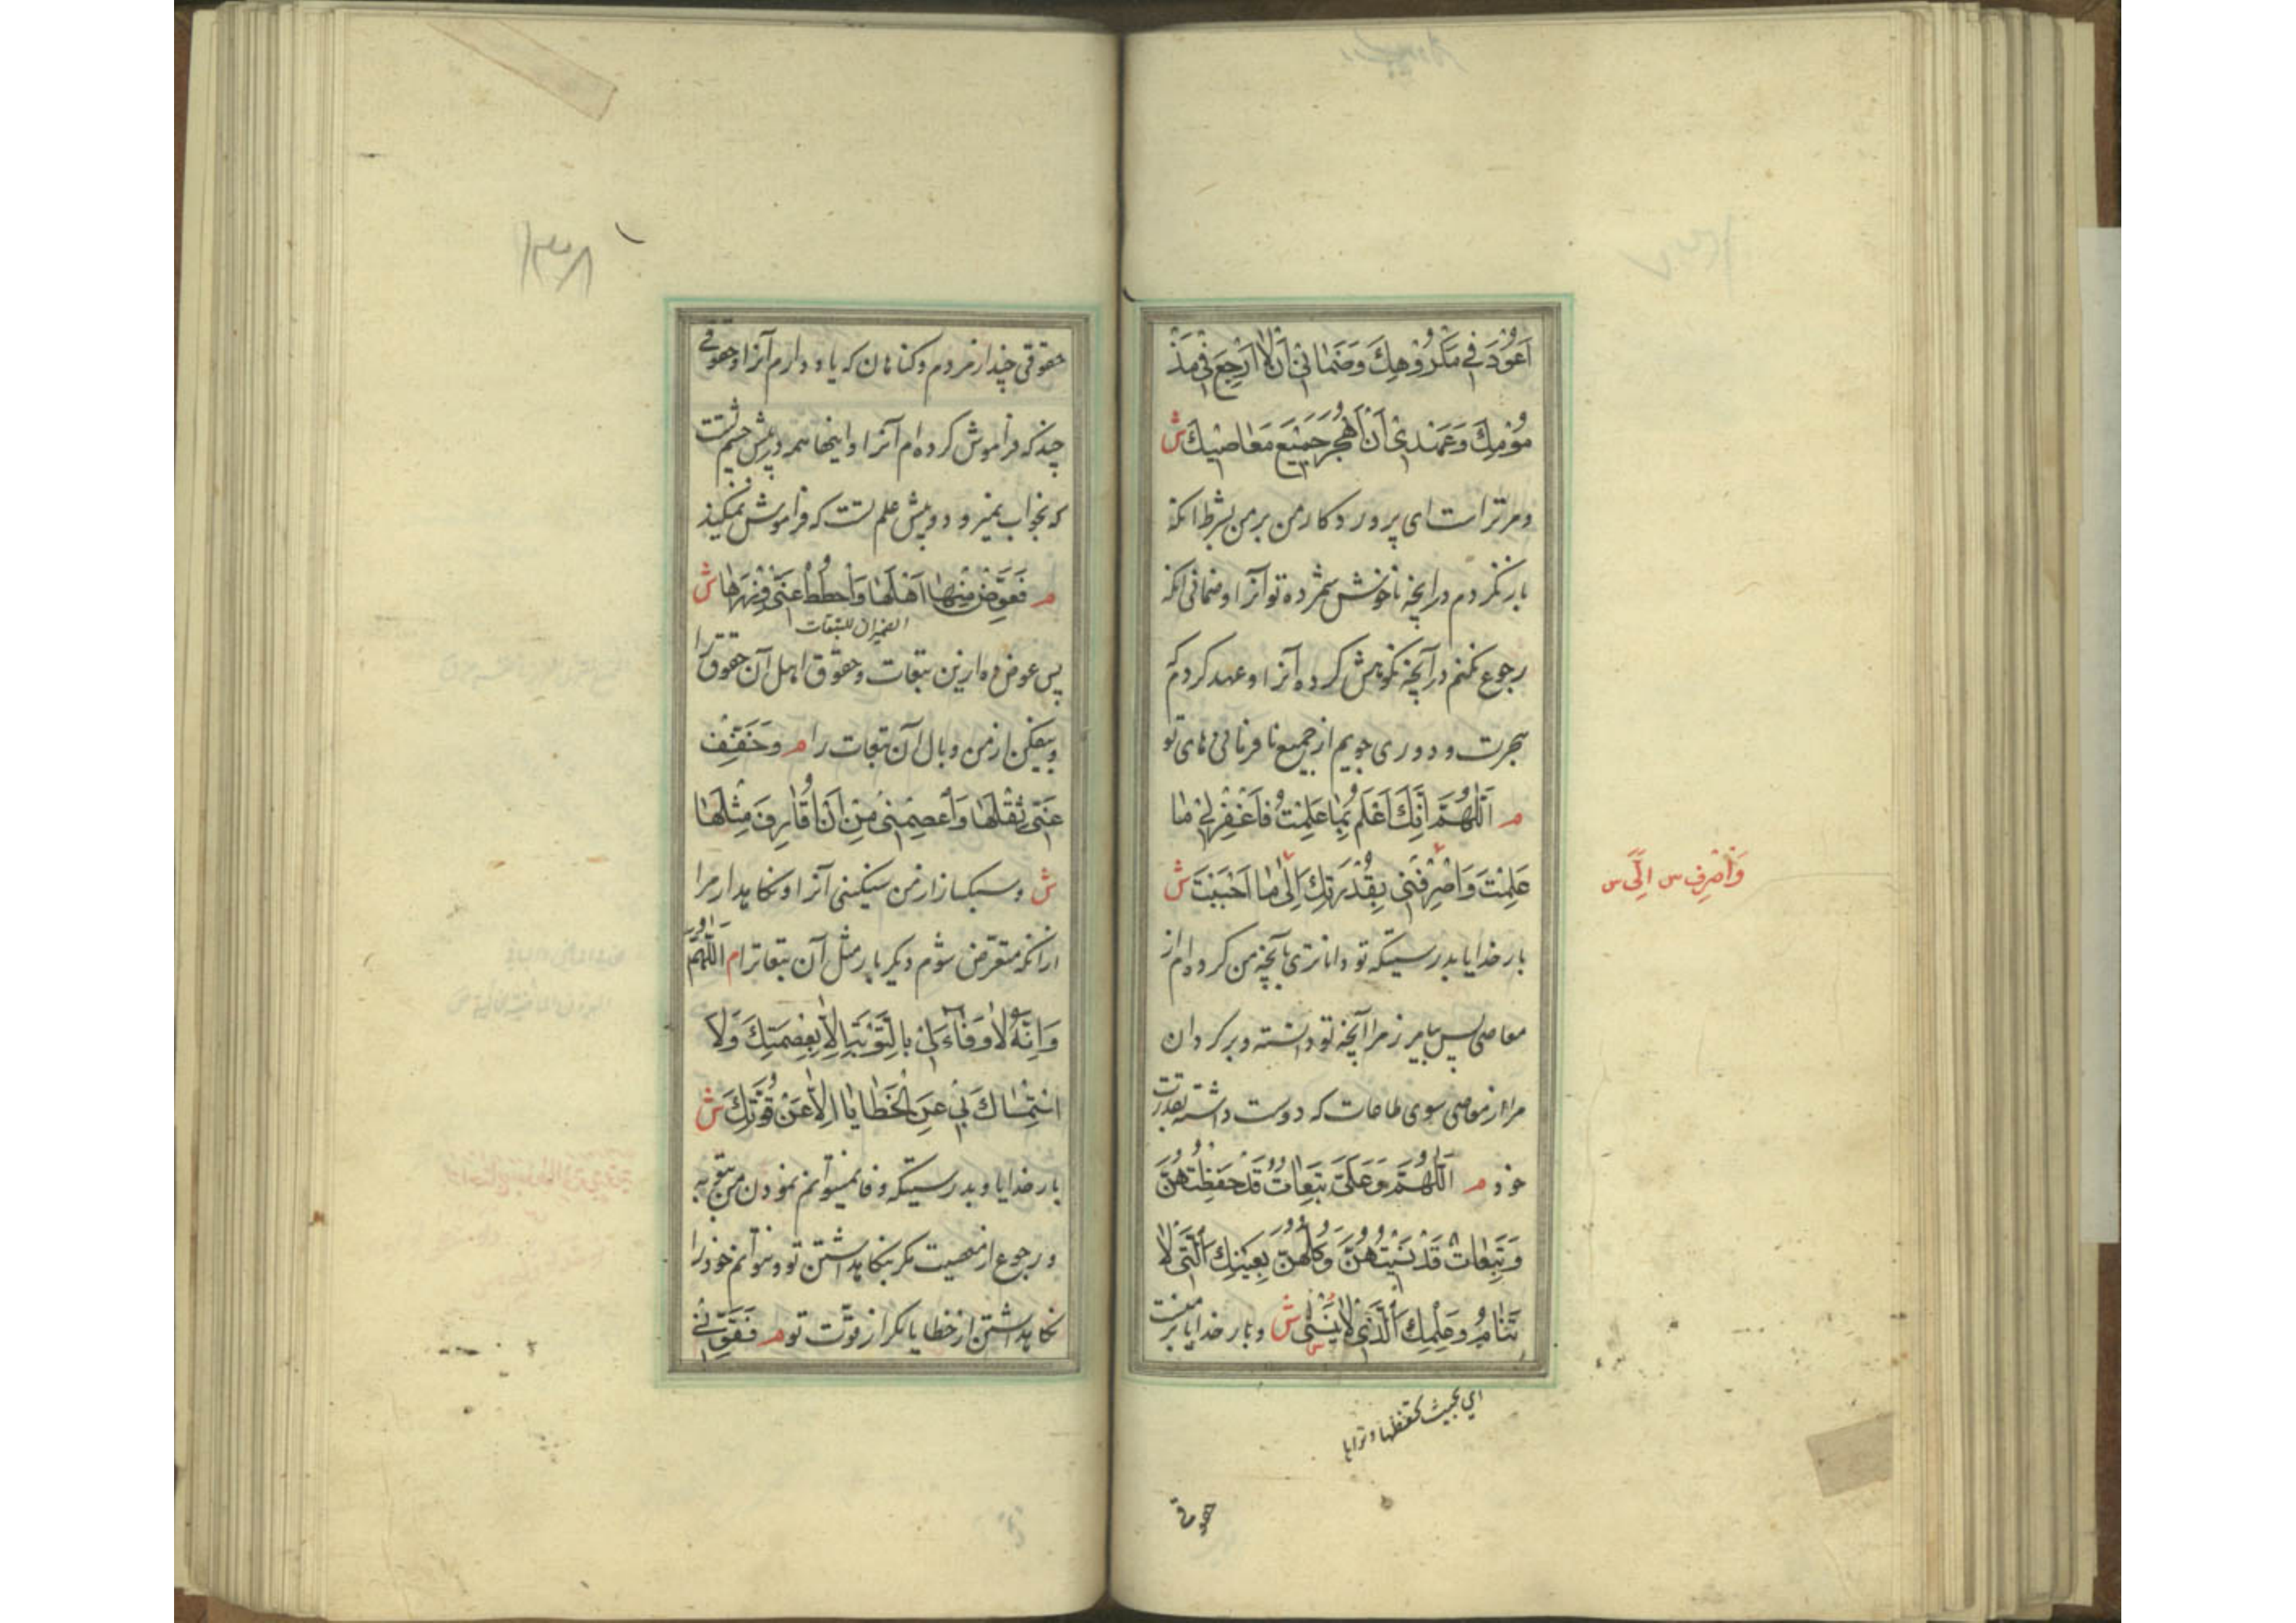 اَعُوْدَ فِی مَكْرُوْهِكَ وَضَمَانِیْ اَنْ لَا اَرْجِعَ فِیْ مَذْ
مُوْمِكَ وَعَهْدِیْ اَنْ اَهْجُرَ جَمِیْعَ مَعَاصِیْكَ ش
و مر تراست ای پروردکار من بر من بشرط انکه
باز نکردم در آنچه ناخوش شمرده تو آنرا و ضمانی انکه
رجوع نکنم در آنچه نکوهش کرده آنرا و عهد کردم
هجرت و دوری جویم از جمیع نافرمانی های تو
م اَللّٰهُمَّ اِنَّكَ اَعْلَمُ بِمَا عَلِمْتُ فَاغْفِرْ لِیْ مَا
عَلِمْتَ وَاصْرِفْنِیْ بِقُدْرَتِكَ اِلٰی مَا اَحْبَبْتَ ش
وَاصْرِفْ س اِلَیَّ س
بار خدایا بدرستیکه تو داناتری بآنچه من کرده ام از
معاصی پس بیامرز مرا آنچه تو دانسته و برکردان
مرا از معاصی سوی طاعات که دوست داشته بقدرت
خود م اَللّٰهُمَّ وَعَلَیَّ تَبِعَاتٌ قَدْ حَفِظْتُهُنَّ
وَتَبِعَاتٌ قَدْ نَسِیْتُهُنَّ وَكُلُّهُنَّ بِعَیْنِكَ الَّتِیْ لَا
تَنَامُ وَعِلْمِكَ الَّذِیْ لَا یَنْسٰی ش و بار خدایا بر منست
ای بحیث تحفظها و تراها
حقوقی
۱۳۸
حقوقی چند از مردم و کناهان که یاد دارم آنرا و حقوقی
چند که فراموش کرده ام آنرا و اینها همه در پیش چشم تست
که بخواب نمیرود و پیش علم تست که فراموش نمیکند
م فَعَوِّضْ مِنْهَا اَهْلَهَا وَاحْطُطْ عَنِّیْ وِزْرَهَا ش
الضمیران للتبعات
پس عوض ده ازین تبعات و حقوق اهل آن حقوق را
و بیفکن از من وبال آن تبعات را م وَخَفِّفْ
عَنِّیْ ثِقْلَهَا وَاعْصِمْنِیْ مِنْ اَنْ اُقَارِفَ مِثْلَهَا
ش و سبک ساز از من سنکینی آنرا و نکاهدار مرا
از انکه متعرّض شوم دیکر بار مثل آن تبعات را م اَللّٰهُمَّ
وَاِنَّهُ لَا وَفَاءَ لِیْ بِالتَّوْبَةِ اِلَّا بِعِصْمَتِكَ وَلَا
اسْتِمْسَاكَ بِیْ عَنِ الْخَطَایَا اِلَّا عَنْ قُوَّتِكَ ش
بار خدایا و بدرستیکه وفا نمیتوانم نمودن من بتوبه
و رجوع از معصیت مکر بنکاهداشتن تو و نتوانم خود را
نکاهداشتن از خطایا مکر از قوّت تو م فَقَوِّنِیْ